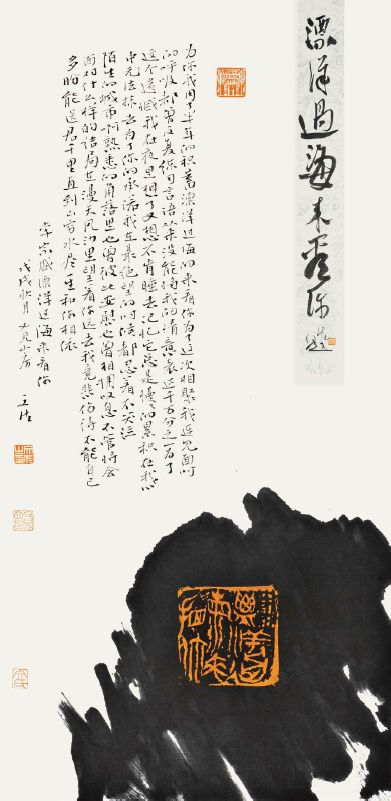 漂洋過海来看你 題
为你我用了半年的积蓄漂洋过海的来看你为了这次相聚我连见面时
的呼吸都曾反复练习言语从来没能将我的情意表达千万分之一为了
这个遗憾我在夜里想了又想不肯睡去记忆它总是慢慢的累积在我心
中无法抹去为了你的承诺我在最绝望的时候都忍着不哭泣
陌生的城市啊熟悉的角落里也曾彼此安慰也曾相拥叹息不管将会
面对什么样的结局在漫天风沙里望着你远去我竟悲伤得不能自已
多盼能送君千里直到山穷水尽一生和你相依
李宗盛漂洋过海来看你
戊戌秋月